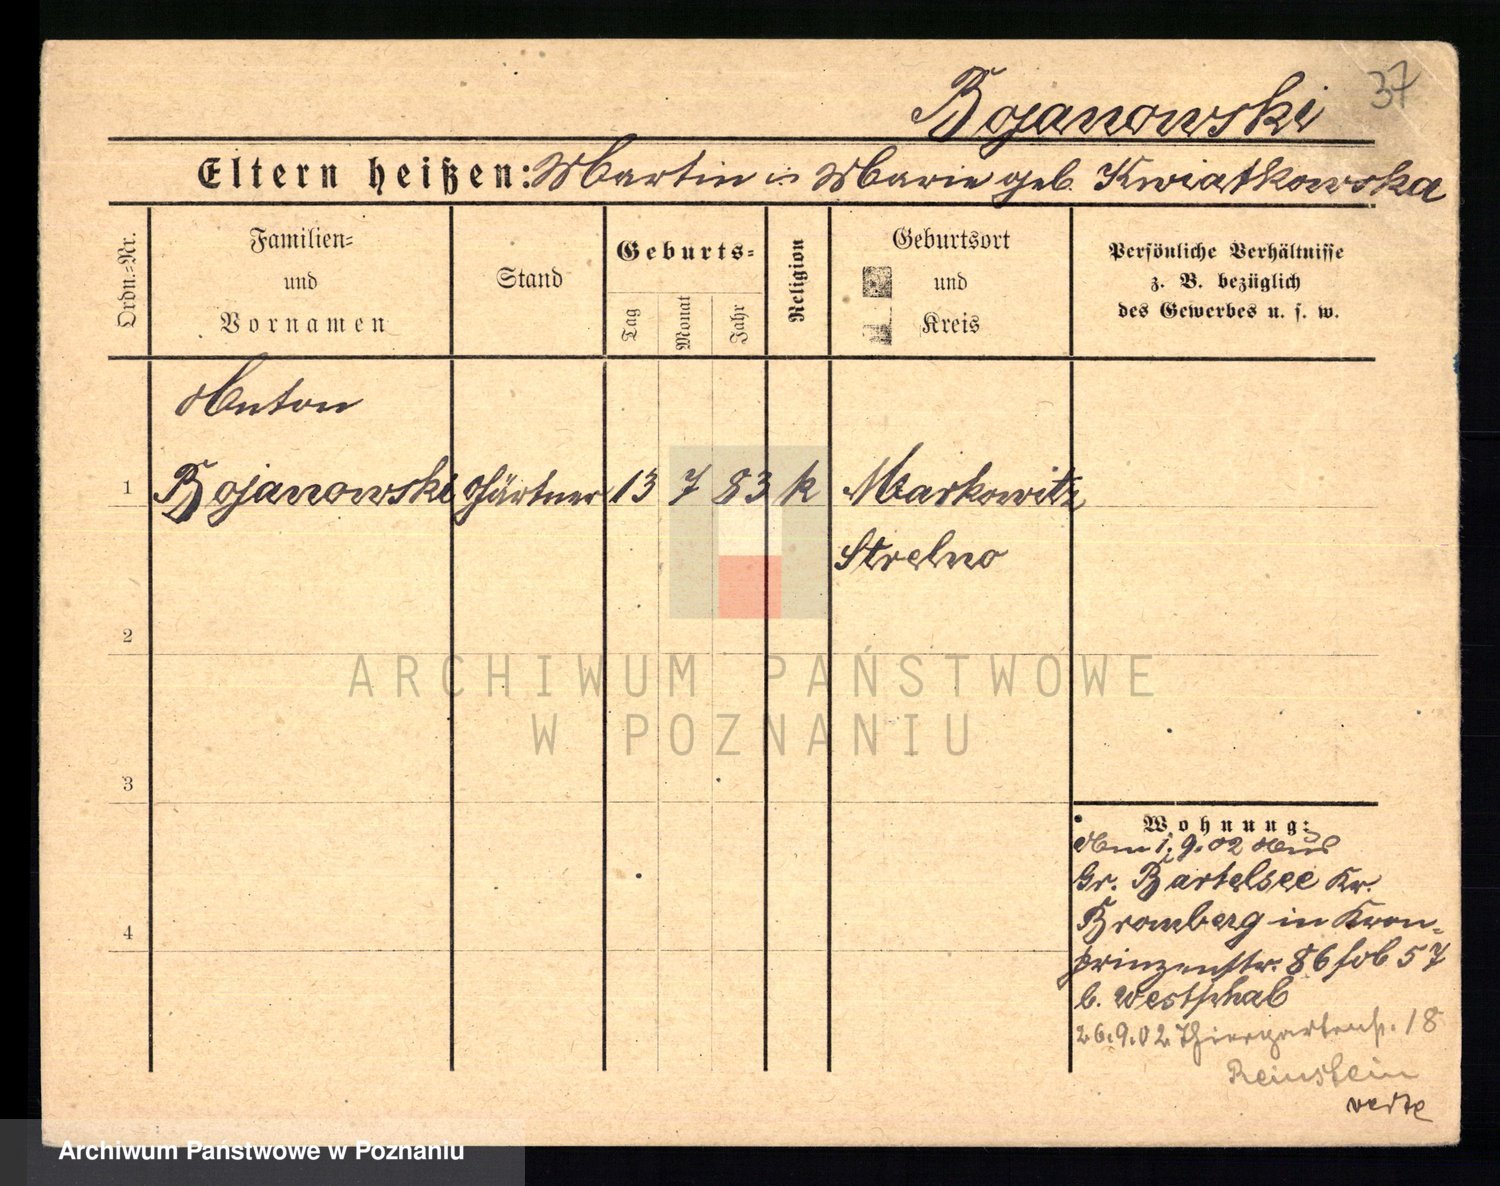 37
Bojanowski
Eltern heißen: Martin u Marie geb. Kwiatkowska
Ordn.-Nr.
Familien-
und
Vornamen
Stand
Geburts-
Tag
Monat
Jahr
Religion
Geburtsort
und
Kreis
Persönliche Verhältnisse
z. B. bezüglich
des Gewerbes u. s. w.
Anton
1 Bojanowski Gärtner 13 7 83 k Markowitz
Strelno
2
3
4
Wohnung:
Am 1.9.02 aus
Gr. Bartelsee Kr.
Bromberg in Kron-
prinzenstr. 86 57
b. Westphal
26.9.02 Thiergartenstr. 18
Reinstein
verte
ARCHIWUM PAŃSTWOWE
W POZNANIU
Archiwum Państwowe w Poznaniu